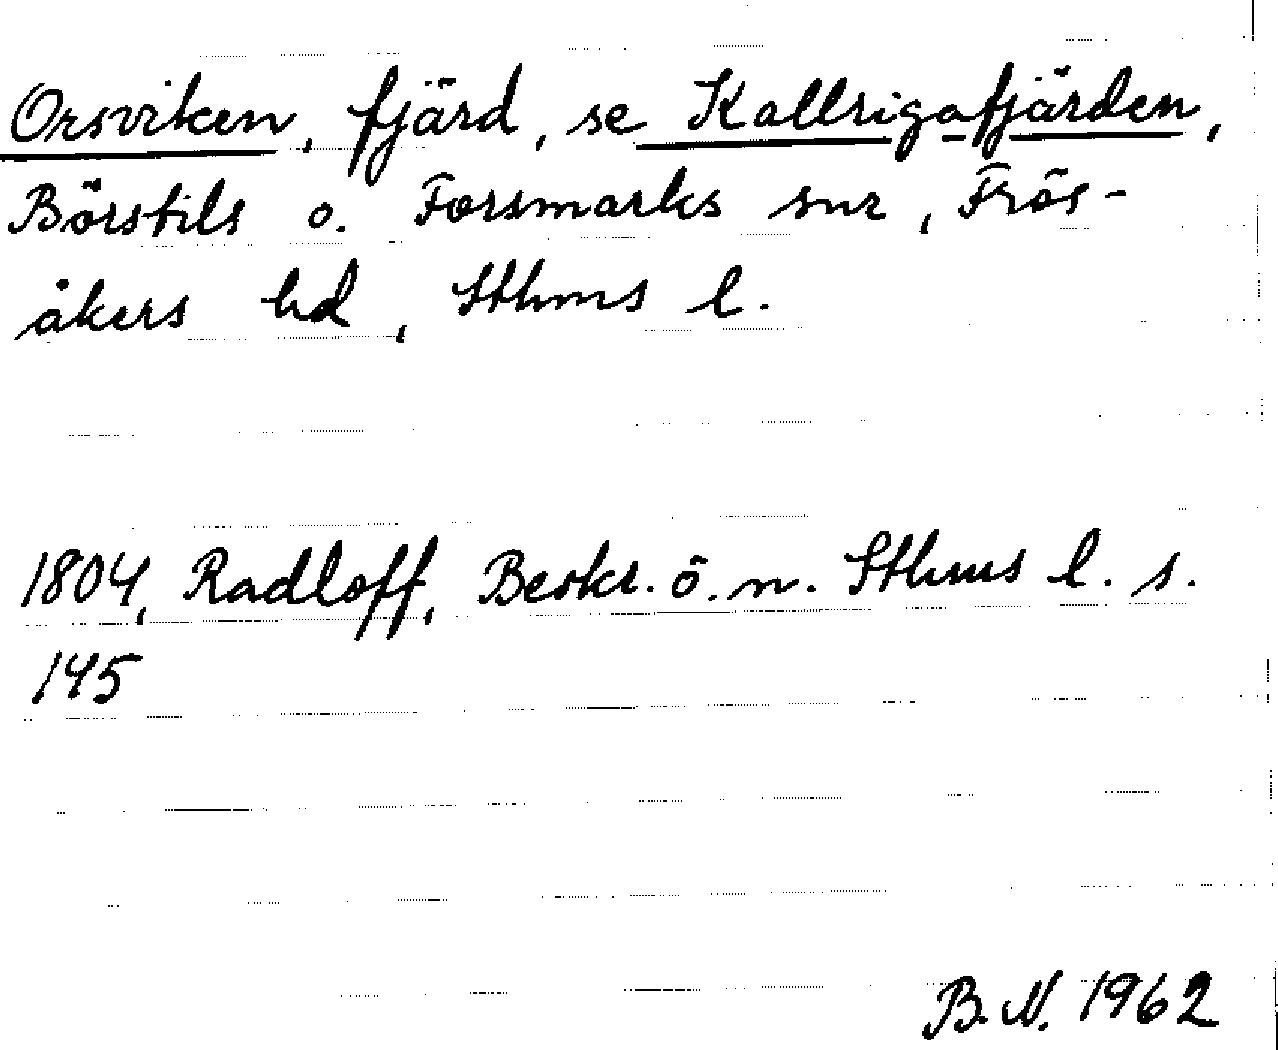 Orsviken, fjärd, se Kallrigafjärden,
Börstils o. Forsmarks snr, Frös-
åkers hd, Sthms l.
1804, Radloff, Beskr. ö. n. Sthms l. s.
145
B.N. 1962